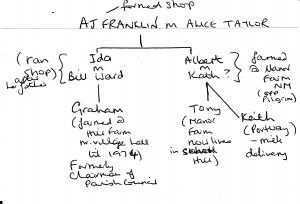 formed shop
AJ FRANKLIN M ALICE TAYLOR
(ran shop) after her father
Ida
m
Bill Ward
Albert
m
Kath?
farmed @ Manor Farm NM (opp Pilgrim)
Graham
(farmed @ Hill Farm
nr. village hall
til 1974)
Formerly
Chairman of
Parish Council
Tony
(Manor
Farm
now lives
in
Hill)
Keith
(Portway)
- milk
delivery